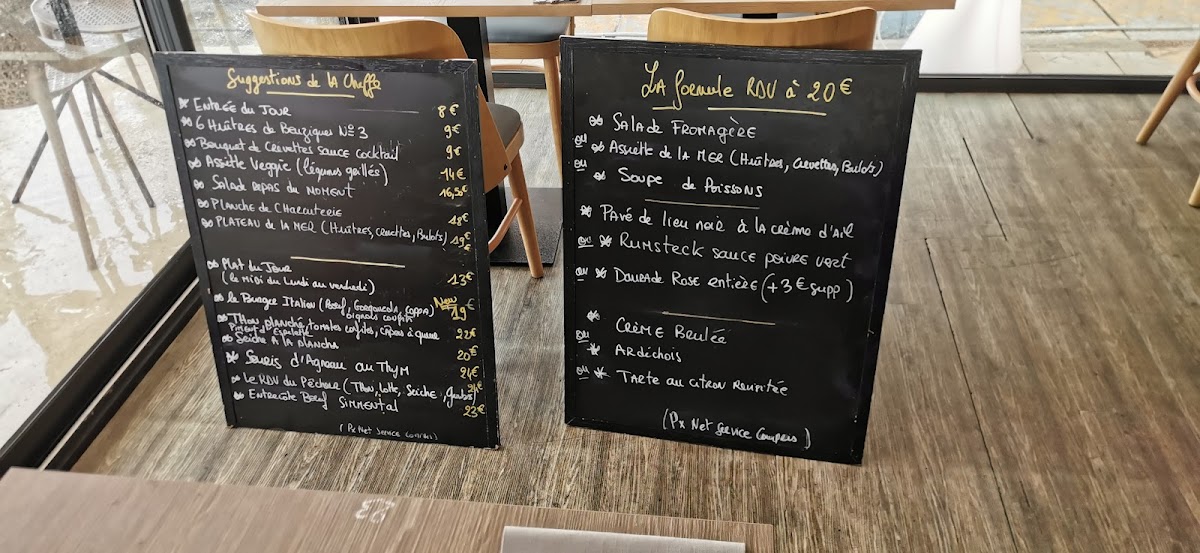 Suggestions de la Cheffe
Entrée du Jour 8€
6 Huîtres de Bouzigues N°3 9€
Bouquet de Crevettes sauce cocktail 9€
Assiette Veggie (légumes grillés) 14€
Salade repas du moment 16,50€
Planche de Charcuterie 18€
Plateau de la Mer (Huîtres, crevettes, Bulots) 19€
Plat du Jour 13€
(le midi du lundi au vendredi)
le Burger Italien (Boeuf, Gorgonzola, Coppa) New 19€
oignons confits
Thon planché, tomates confites, câpres à queue 22€
Piment d'Espelette
Seiche à la plancha 20€
Souris d'Agneau au Thym 24€
Le RDV du Pêcheur (Thon, Lotte, Seiche, Gambas) 24€
Entrecôte Boeuf Simmental 23€
(Px Net Service Compris)
La formule RDV à 20€
Salade Fromagère
ou Assiette de la Mer (Huîtres, Crevettes, Bulots)
ou Soupe de Poissons
Pavé de lieu noir à la crème d'ail
ou Rumsteck sauce poivre vert
ou Daurade Rose entière (+3€ supp)
Crème Brulée
ou Ardéchois
ou Tarte au citron revisitée
(Px Net Service Compris)